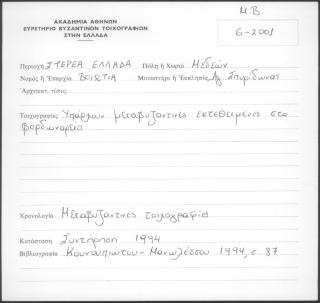 ΜΒ
ΑΚΑΔΗΜΙΑ ΑΘΗΝΩΝ
ΕΥΡΕΤΗΡΙΟ ΒΥΖΑΝΤΙΝΩΝ ΤΟΙΧΟΓΡΑΦΙΩΝ
ΣΤΗΝ ΕΛΛΑΔΑ
6-2001
Περιοχή ΣΤΕΡΕΑ ΕΛΛΑΔΑ Πόλη ή Χωριό Μεδεών
Νομός ή Ἐπαρχία ΒΟΙΩΤΙΑ Μοναστήρι ή Ἐκκλησία Αγ. Σπυρίδωνας
Ἀρχιτεκτ. τύπος
Τοιχογραφίες Υπάρχουν μεταβυζαντινές εκτεθειμένες στο
βορδωναρείο
Χρονολογία Μεταβυζαντινές τοιχογραφίες
Κατάσταση Συντήρηση 1994
Βιβλιογραφία Κουνουπιώτου-Μανωλέσσου 1994, σ. 87